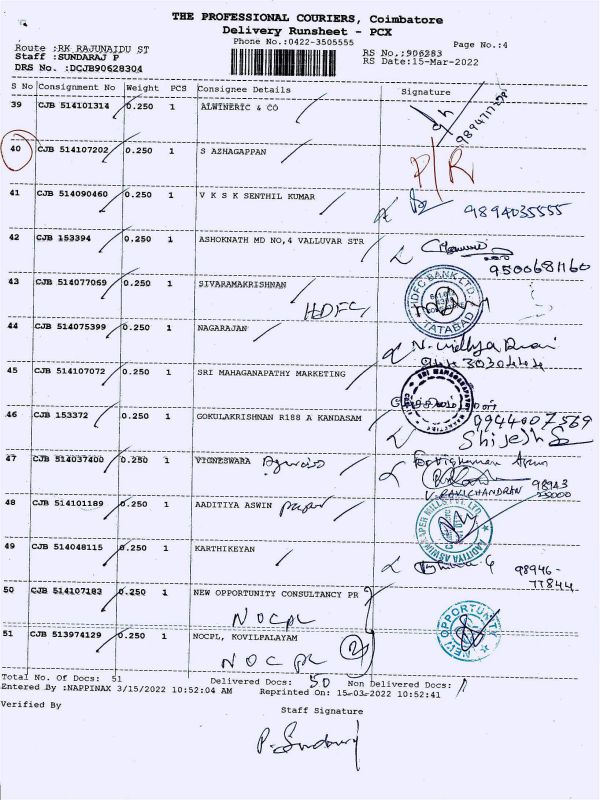 THE PROFESSIONAL COURIERS, Coimbatore
Delivery Runsheet - PCX
Phone No.:0422-3505555
Page No.:4
Route :RK RAJUNAIDU ST
Staff :SUNDARAJ P
DRS No. :DCJB90628304
RS No.:906283
RS Date:15-Mar-2022
S No Consignment No Weight PCS Consignee Details Signature
39 CJB 514101314 0.250 1 ALWINERIC & CO
40 CJB 514107202 0.250 1 S AZHAGAPPAN P/R
41 CJB 514090460 0.250 1 V K S K SENTHIL KUMAR 9894035555
42 CJB 153394 0.250 1 ASHOKNATH MD NO,4 VALLUVAR STR
9500681160
43 CJB 514077069 0.250 1 SIVARAMAKRISHNAN
HDFC
HDFC BANK LTD.
TATABAD
44 CJB 514075399 0.250 1 NAGARAJAN
45 CJB 514107072 0.250 1 SRI MAHAGANAPATHY MARKETING
46 CJB 153372 0.250 1 GOKULAKRISHNAN R188 A KANDASAM 9944007569
Shijesh
47 CJB 514037400 0.250 1 VIGNESWARA
V. RAVICHANDRAN
48 CJB 514101189 0.250 1 AADITIYA ASWIN paper
AADITIYA ASWIN PAPER MILLS PVT LTD
49 CJB 514048115 0.250 1 KARTHIKEYAN
98946-
77844
50 CJB 514107183 0.250 1 NEW OPPORTUNITY CONSULTANCY PR
NOCPL
NEW OPPORTUNITY
51 CJB 513974129 0.250 1 NOCPL, KOVILPALAYAM
NOCPL 2
Total No. Of Docs: 51 Delivered Docs: 50 Non Delivered Docs: 1
Entered By :NAPPINAX 3/15/2022 10:52:04 AM Reprinted On: 15-03-2022 10:52:41
Verified By
Staff Signature
P. Sundaraj